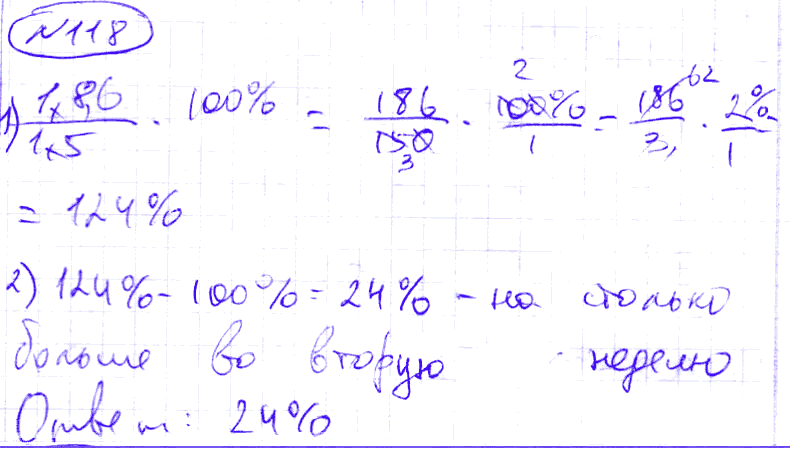 №118
1) 1,86/1,5 · 100% = 186/150 3 · 100% 2/1 = 186 62/3 · 2%/1
= 124%
2) 124% - 100% = 24% - на столько
больше во вторую неделю
Ответ: 24%